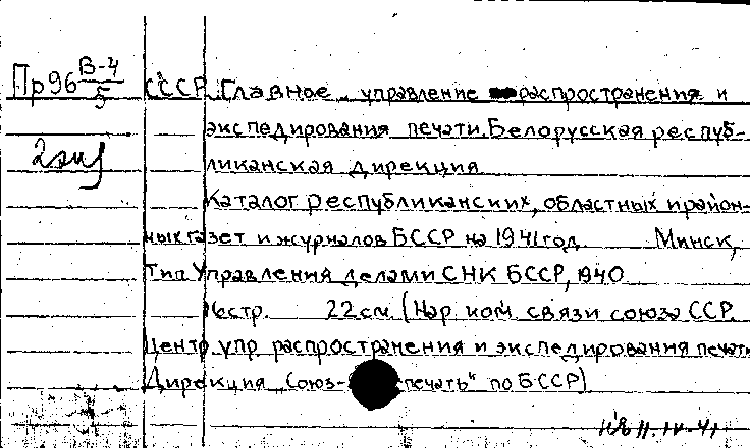 Пр96 В-4/5
СССР. Главное управление распространения и
экспедирования печати. Белорусская респуб-
2 экз
ликанская дирекция
Каталог республиканских, областных и район-
ных газет и журналов БССР на 1941 год Минск,
Тип Управления делами СНК БССР, 1940
16 стр. 22 см. (Нар. ком. связи союза ССР.
Центр упр распространения и экспедирования печати
Дирекция „Союз-печать" по БССР)